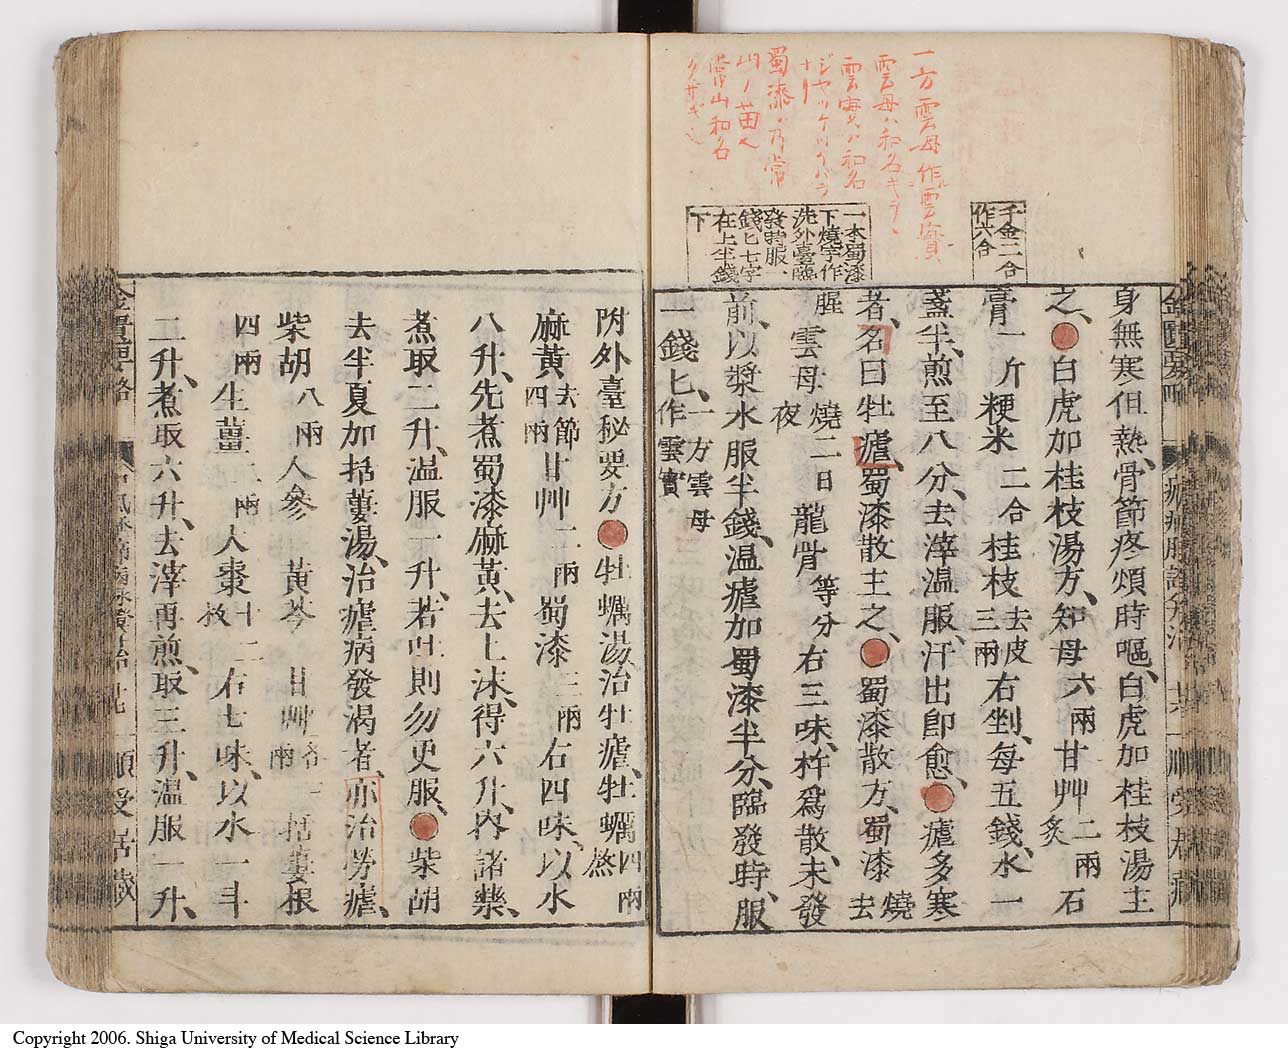 一方雲母作雲實
雲母ハ和名キラヽ
雲實ハ和名
ジヤケツイバラ
ナリ
蜀漆ハ乃常
山ノ苗也
常山和名
クサギ也
千金二合
作六合
一本蜀漆
下燒字作
洗外臺臨
發時服一
錢匕七字
在上半錢
下
金匱要略
瘧病脈證并治
順受居藏
身無寒但熱骨節疼煩時嘔白虎加桂枝湯主
之白虎加桂枝湯方知母六兩甘艸二兩炙石
膏一斤粳米二合桂枝去皮三兩右剉每五錢水一
盞半煎至八分去滓溫服汗出卽愈瘧多寒
者名曰牡瘧蜀漆散主之蜀漆散方蜀漆燒去
腥雲母燒二日夜龍骨等分右三味杵爲散未發
前以漿水服半錢溫瘧加蜀漆半分臨發時服
一錢匕一方雲母作雲實
附外臺秘要方牡蠣湯治牡瘧牡蠣四兩熬
麻黃去節四兩甘艸二兩蜀漆三兩右四味以水
八升先煮蜀漆麻黃去上沫得六升內諸藥
煮取二升溫服一升若吐則勿更服柴胡
去半夏加括蔞湯治瘧病發渴者亦治勞瘧
柴胡八兩人參 黃芩 甘艸各三兩括蔞根
四兩生薑二兩大棗十二枚右七味以水一斗
二升煮取六升去滓再煎取三升溫服一升
金匱要略
順受居藏
Copyright 2006. Shiga University of Medical Science Library